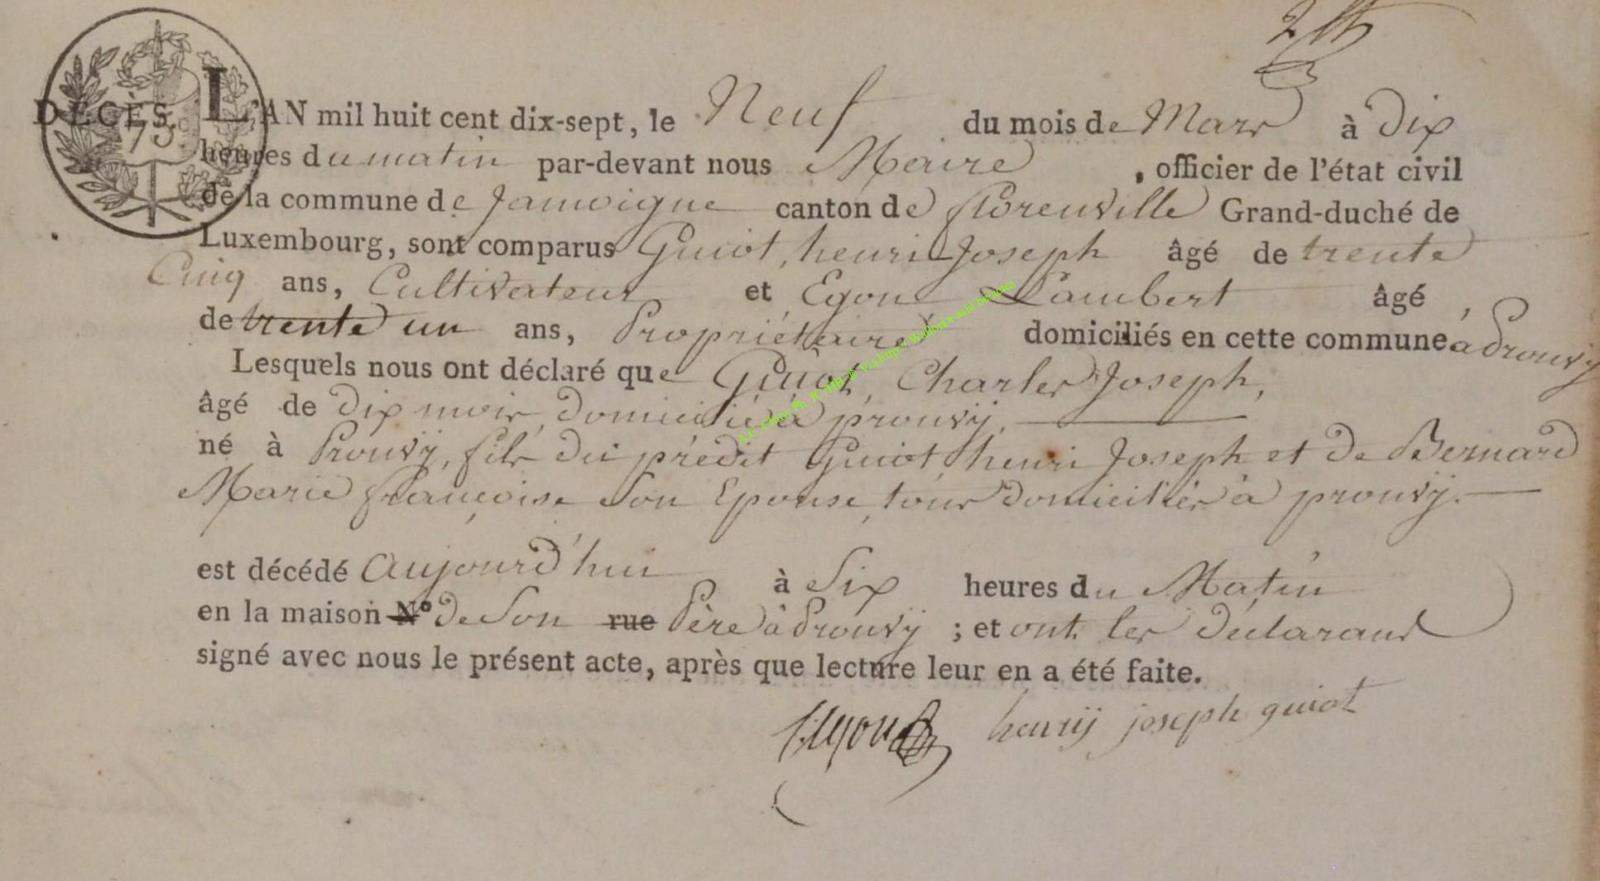 DÉCÈS. L'AN mil huit cent dix-sept, le Neuf du mois de Mars à dix
75
heures du matin par-devant nous Maire, officier de l'état civil
de la commune de Jamoigne canton de florenville Grand-duché de
Luxembourg, sont comparus Guiot, henri Joseph âgé de trente
Cinq ans, Cultivateur et Egon Lambert âgé
de trente un ans, Propriétaire domiciliés en cette commune, à Prouvy
Lesquels nous ont déclaré que Guiot, Charles Joseph,
âgé de dix mois, domicilié à prouvÿ.
né à Prouvÿ, fils du prédit Guiot henri Joseph et de Bernard
Marie françoise Son Epouse, tous domiciliés à prouvÿ.
est décédé aujourd'hui à Six heures du Matin
en la maison N° de Son rue Père à Prouvÿ ; et ont les déclarans
signé avec nous le présent acte, après que lecture leur en a été faite.
Egon henrij joseph guiot